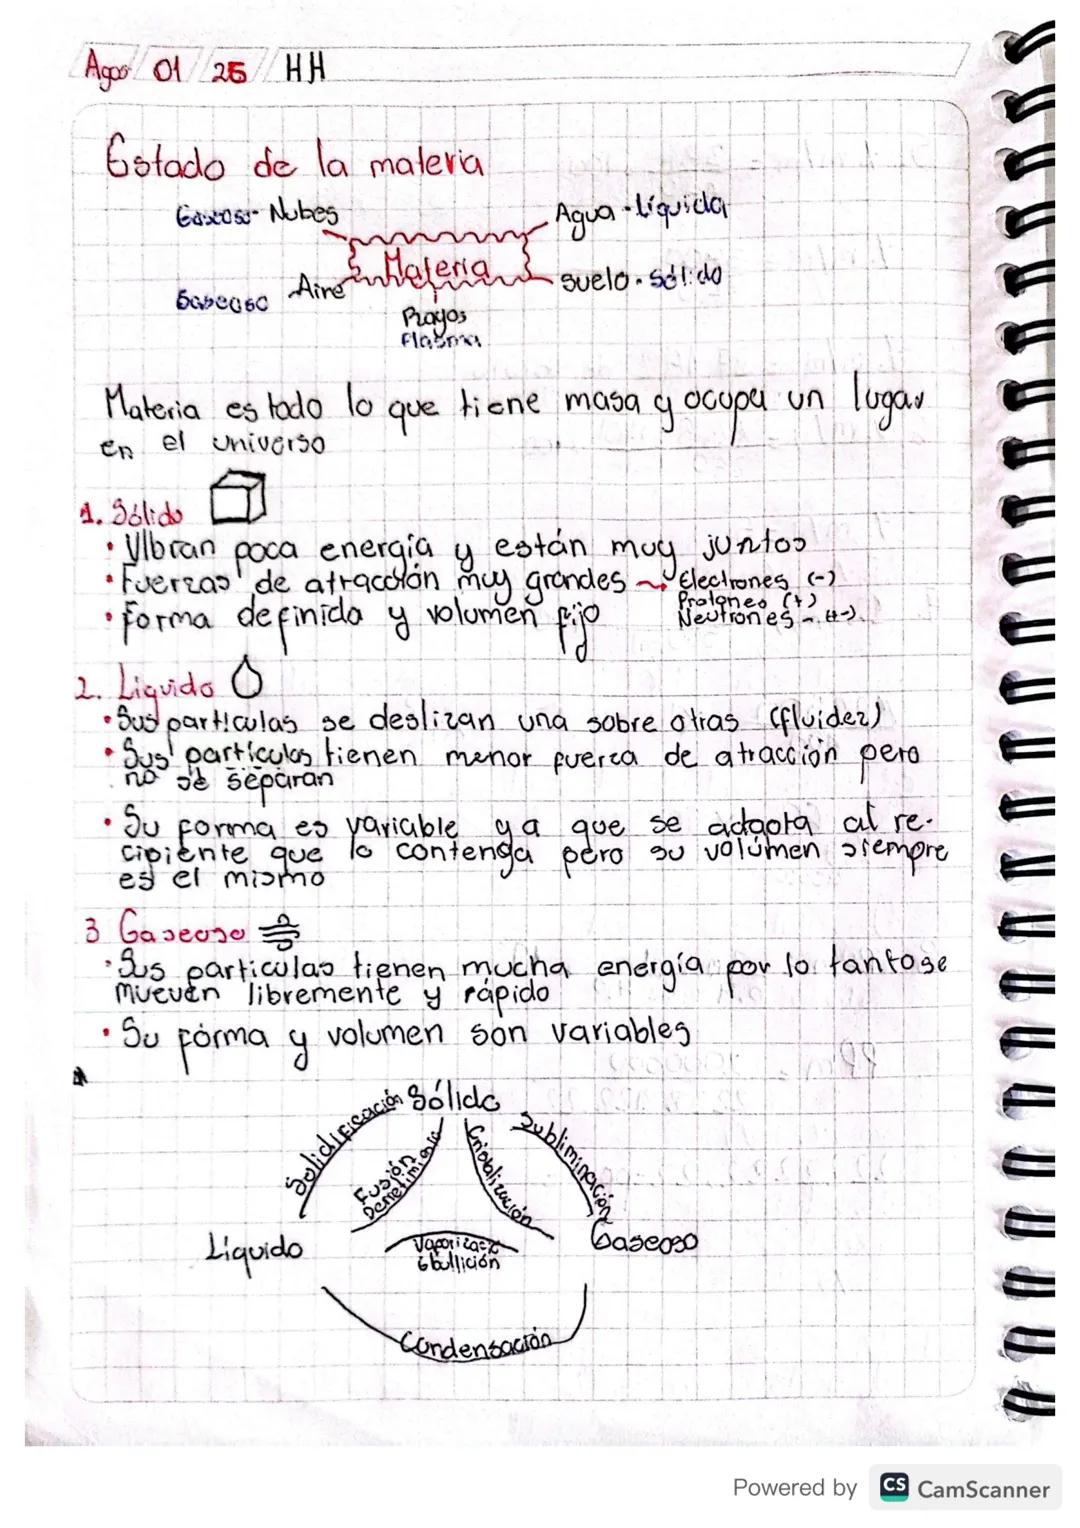 Agos 01 25 HH
Estado de la materia
Gaseoso - Nubes
Agua - líquida
Materia
Aire
Gaseoso
suelo - sólido
Rayos
Plasma
Materia es todo lo que tiene masa y ocupa un lugar
en el universo
1. Sólido
• Vibran poca energía y están muy juntos
• Fuerzas de atracción muy grandes → Electrones (-)
Protones (+)
Neutrones - (+-)
• Forma definida y volumen fijo
2. Líquido
• Sus partículas se deslizan una sobre otras (fluidez)
• Sus partículas tienen menor fuerza de atracción pero
no se separan
• Su forma es variable ya que se adapta al re-
cipiente que lo contenga pero su volúmen siempre
es el mismo
3 Gaseoso
• Sus partículas tienen mucha energía por lo tanto se
mueven libremente y rápido
• Su forma y volumen son variables
Sólido
Solidificación
Sublimación
Fusión
Cristalización
Líquido
Gaseoso
Ebullición
Condensación
Powered by CS CamScanner